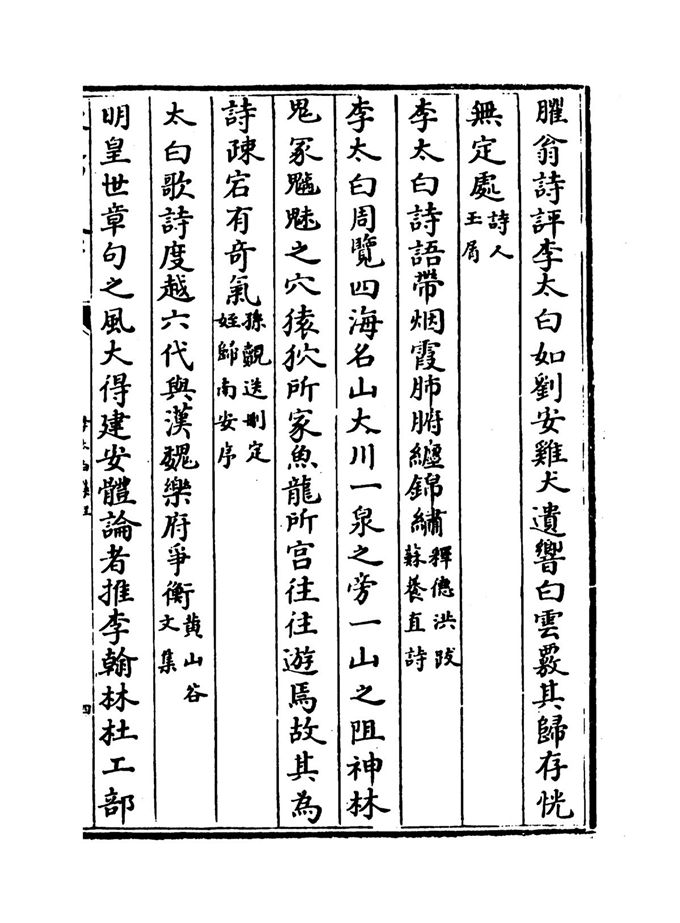 臞翁詩評李太白如劉安雞犬遺響白雲覈其歸存恍
無定處詩人玉屑
李太白詩語帶烟霞肺腑纏錦繡釋德洪跋蘇養直詩
李太白周覽四海名山大川一泉之旁一山之阻神林
鬼冢魑魅之穴猿狖所家魚龍所宫往往遊焉故其為
詩疎宕有竒氣孫覿送删定姪歸南安序
太白歌詩度越六代與漢魏樂府爭衡黄山谷文集
明皇世章句之風大得建安體論者推李翰林杜工部
四